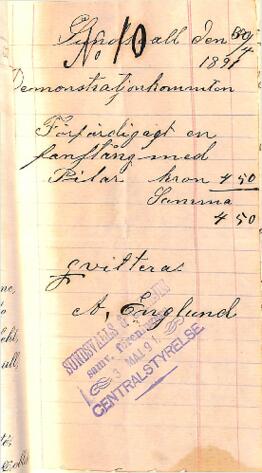 Sundsvall den 30/4
No 10
1891
Demonstrationkommiten
Förfärdigagt en
fanstång med
Pilar kron 4 50
Somma
4 50
qvitteras
A, Englund
SUNDSVALLS
samv. förening
3 MAJ 91
CENTRALSTYRELSE